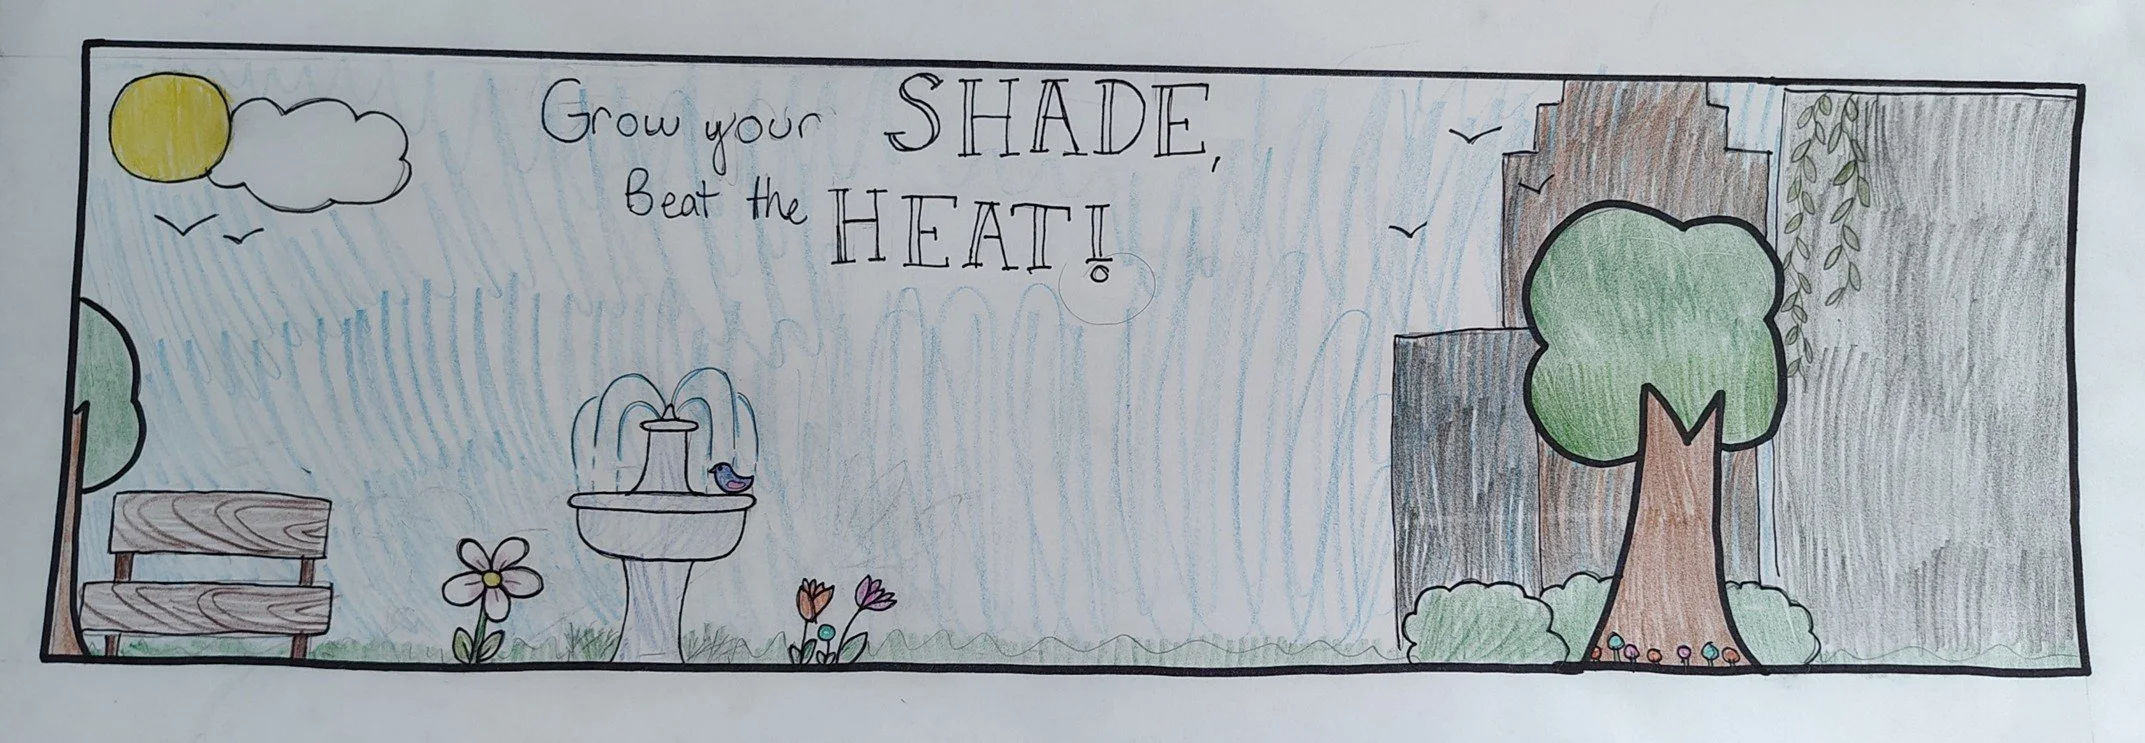 Grow your SHADE,
Beat the HEAT!